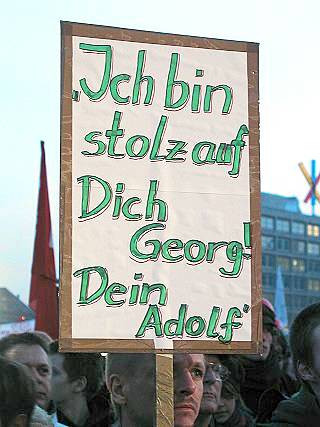 „Ich bin
stolz auf
Dich
Georg!
Dein
Adolf"